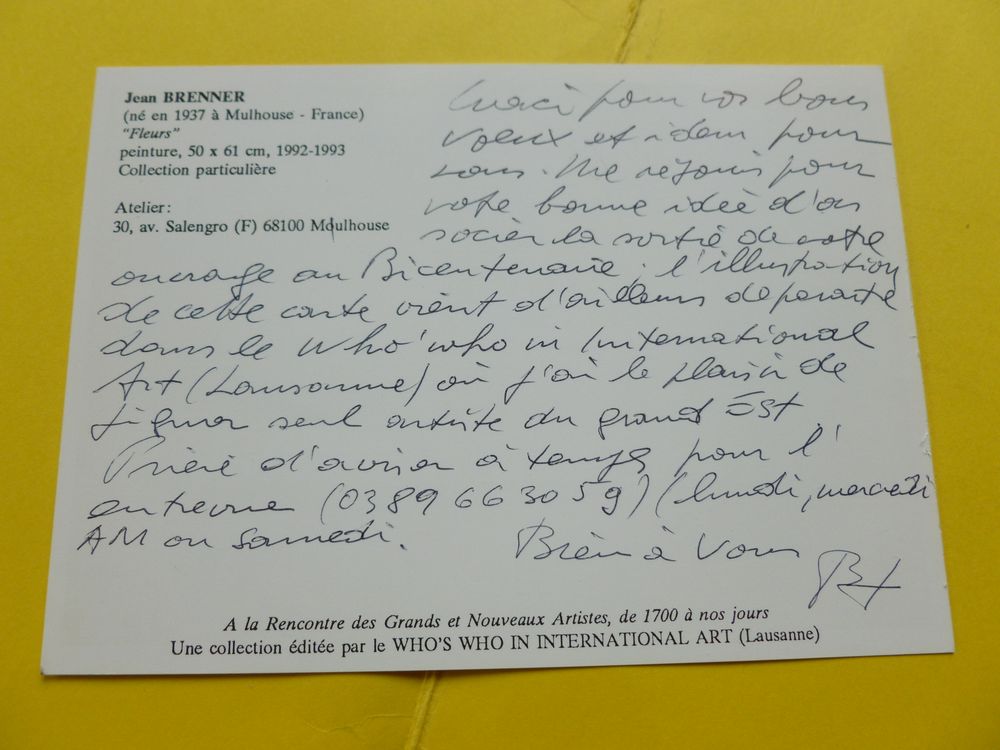 Jean BRENNER
(né en 1937 à Mulhouse - France)
"Fleurs"
peinture, 50 x 61 cm, 1992-1993
Collection particulière
Atelier:
30, av. Salengro (F) 68100 Moulhouse
Merci pour vos bons
voeux et idem pour
vous. Me réjouis pour
votre bonne idée d'as
socier la sortie de votre
ouvrage au Bicentenaire; l'illustration
de cette carte vient d'ailleurs de paraître
dans le Who'who in International
Art (Lausanne) où j'ai le plaisir de
figurer seul artiste du grand Est
Prière d'aviser à temps pour l'
entrevue (03 89 66 30 59) (lundi, mercredi
AM ou samedi.
Bien à Vous
A la Rencontre des Grands et Nouveaux Artistes, de 1700 à nos jours
Une collection éditée par le WHO'S WHO IN INTERNATIONAL ART (Lausanne)